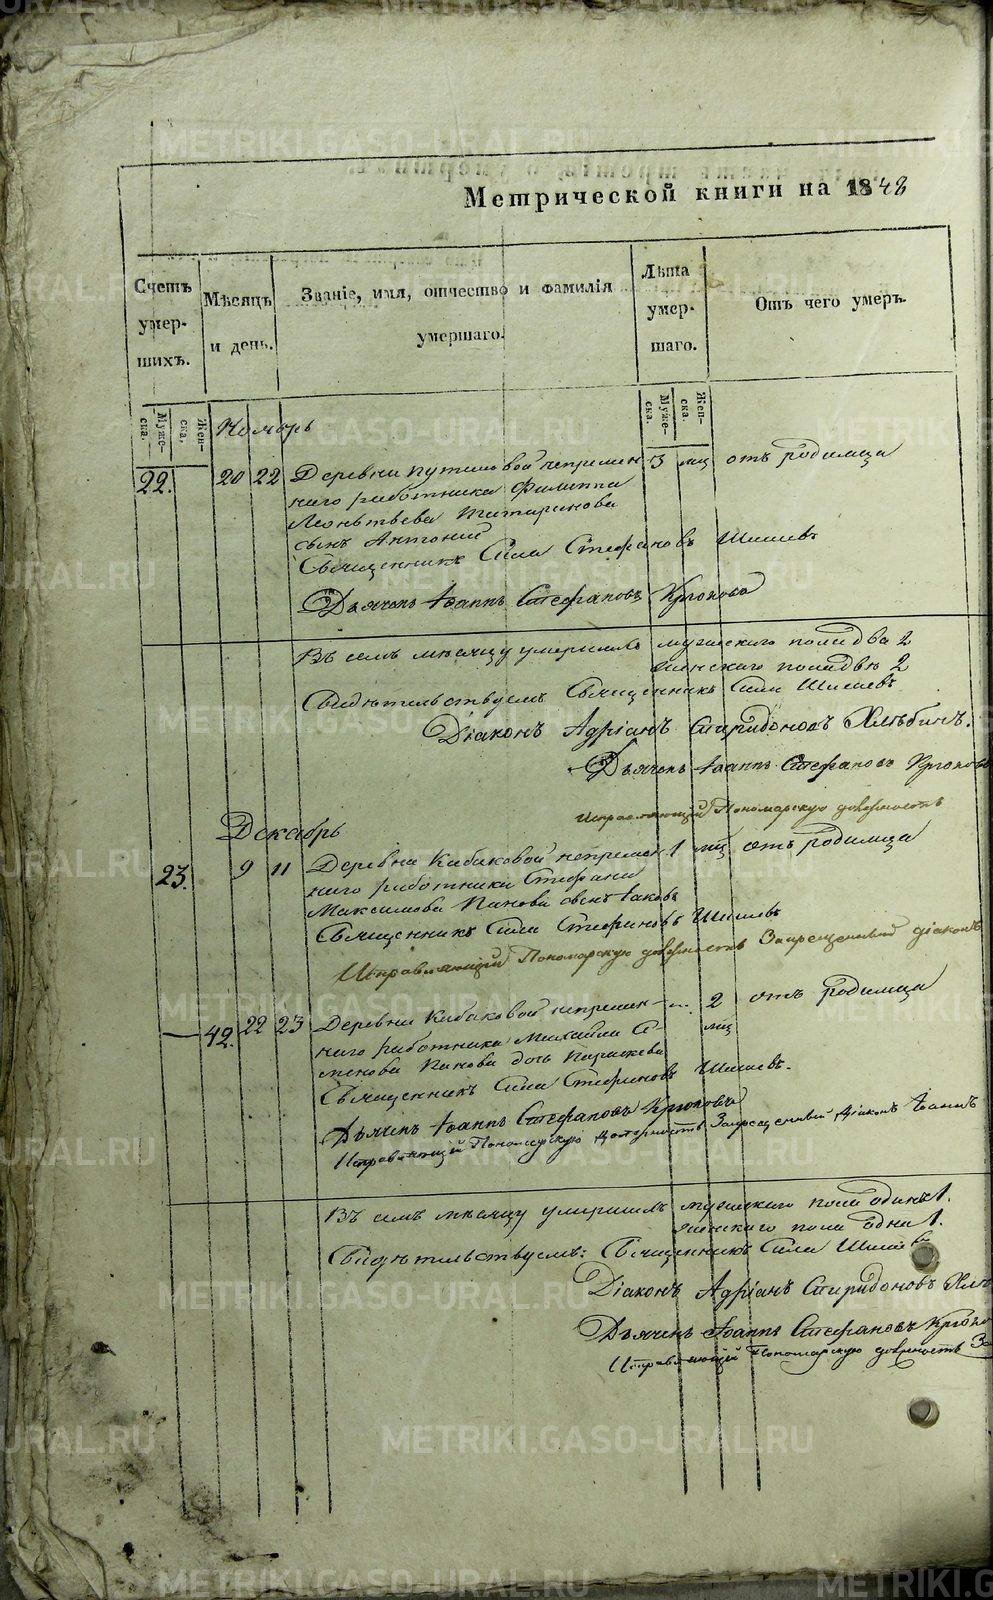 Метрической книги на 1848
Счетъ умер-шихъ.
Мѣсяцъ и день.
Званіе, имя, отчество и фамилія умершаго.
Лѣта умер-шаго.
Отъ чего умеръ.
Муже-ска.
Жен-ска.
Муже-ска.
Жен-ска.
Ноябрь
22. 20 22 Деревни Путиловой непремен 3 мц отъ родимца
наго работника Филиппа
Леонтьева Татаринова
сынъ Антоній
Священникъ Сила Стефановъ Шишевъ
Дьячекъ Іоаннъ Стефановъ Крюковъ
Въ семъ мѣсяцу умершихъ мужескаго пола два 2
женскаго пола двѣ 2
Свидѣтельствуемъ Священникъ Сила Шишевъ
Діаконъ Адріанъ Спиридоновъ Хлѣбинъ.
Дьячекъ Іоаннъ Стефановъ Крюковъ
Исправляющій Пономарскую должность
Декабрь
23. 9 11 Деревни Кабаковой непремен 1 мц отъ родимца
наго работника Стефана
Максимова Панова сынъ Іаковъ
Священникъ Сила Стефановъ Шишевъ
Исправляющій Пономарскую должность Запрещенный діаконъ
— 42. 22 23 Деревни Кабаковой непремен- 2 отъ родимца
наго работника Михаила мц
Панова дочь Параскева
Священникъ Сила Стефановъ Шишевъ.
Дьячекъ Іоаннъ Стефановъ Крюковъ
Исправляющій Пономарскую должность Запрещенный Діаконъ Іоаннъ
Въ семъ мѣсяцу умершихъ мужескаго пола одинъ 1.
женскаго пола одна 1.
Свидѣтельствуемъ: Священникъ Сила Шишевъ
Діаконъ Адріанъ Спиридоновъ Хлѣ
Дьячекъ Іоаннъ Стефановъ Крюко
Исправляющій Пономарскую должность За
METRIKI.GASO-URAL.RU